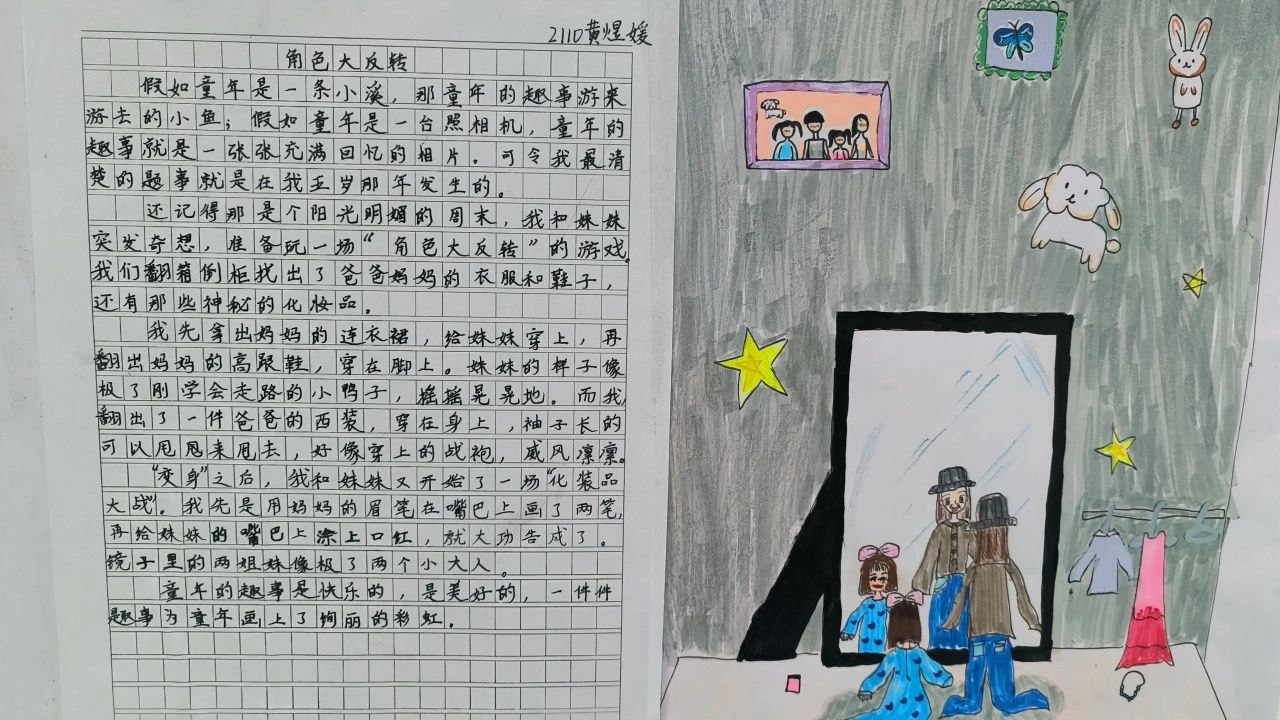 2110黄煜媛
角色大反转
假如童年是一条小溪，那童年的趣事游来
游去的小鱼；假如童年是一台照相机，童年的
趣事就是一张张充满回忆的相片。可令我最清
楚的趣事就是在我五岁那年发生的。
还记得那是个阳光明媚的周末，我和妹妹
突发奇想，准备玩一场“角色大反转”的游戏。
我们翻箱倒柜找出了爸爸妈妈的衣服和鞋子，
还有那些神秘的化妆品。
我先拿出妈妈的连衣裙，给妹妹穿上，再
翻出妈妈的高跟鞋，穿在脚上。妹妹的样子像
极了刚学会走路的小鸭子，摇摇晃晃地。而我，
翻出了一件爸爸的西装，穿在身上，袖子长的
可以甩甩来甩去，好像穿上的战袍，威风凛凛。
“变身”之后，我和妹妹又开始了一场“化装品
大战”。我先是用妈妈的眉笔在嘴巴上画了两笔，
再给妹妹的嘴巴上涂上口红，就大功告成了。
镜子里的两姐妹像极了两个小大人。
童年的趣事是快乐的，是美好的，一件件
趣事为童年画上了绚丽的彩虹。